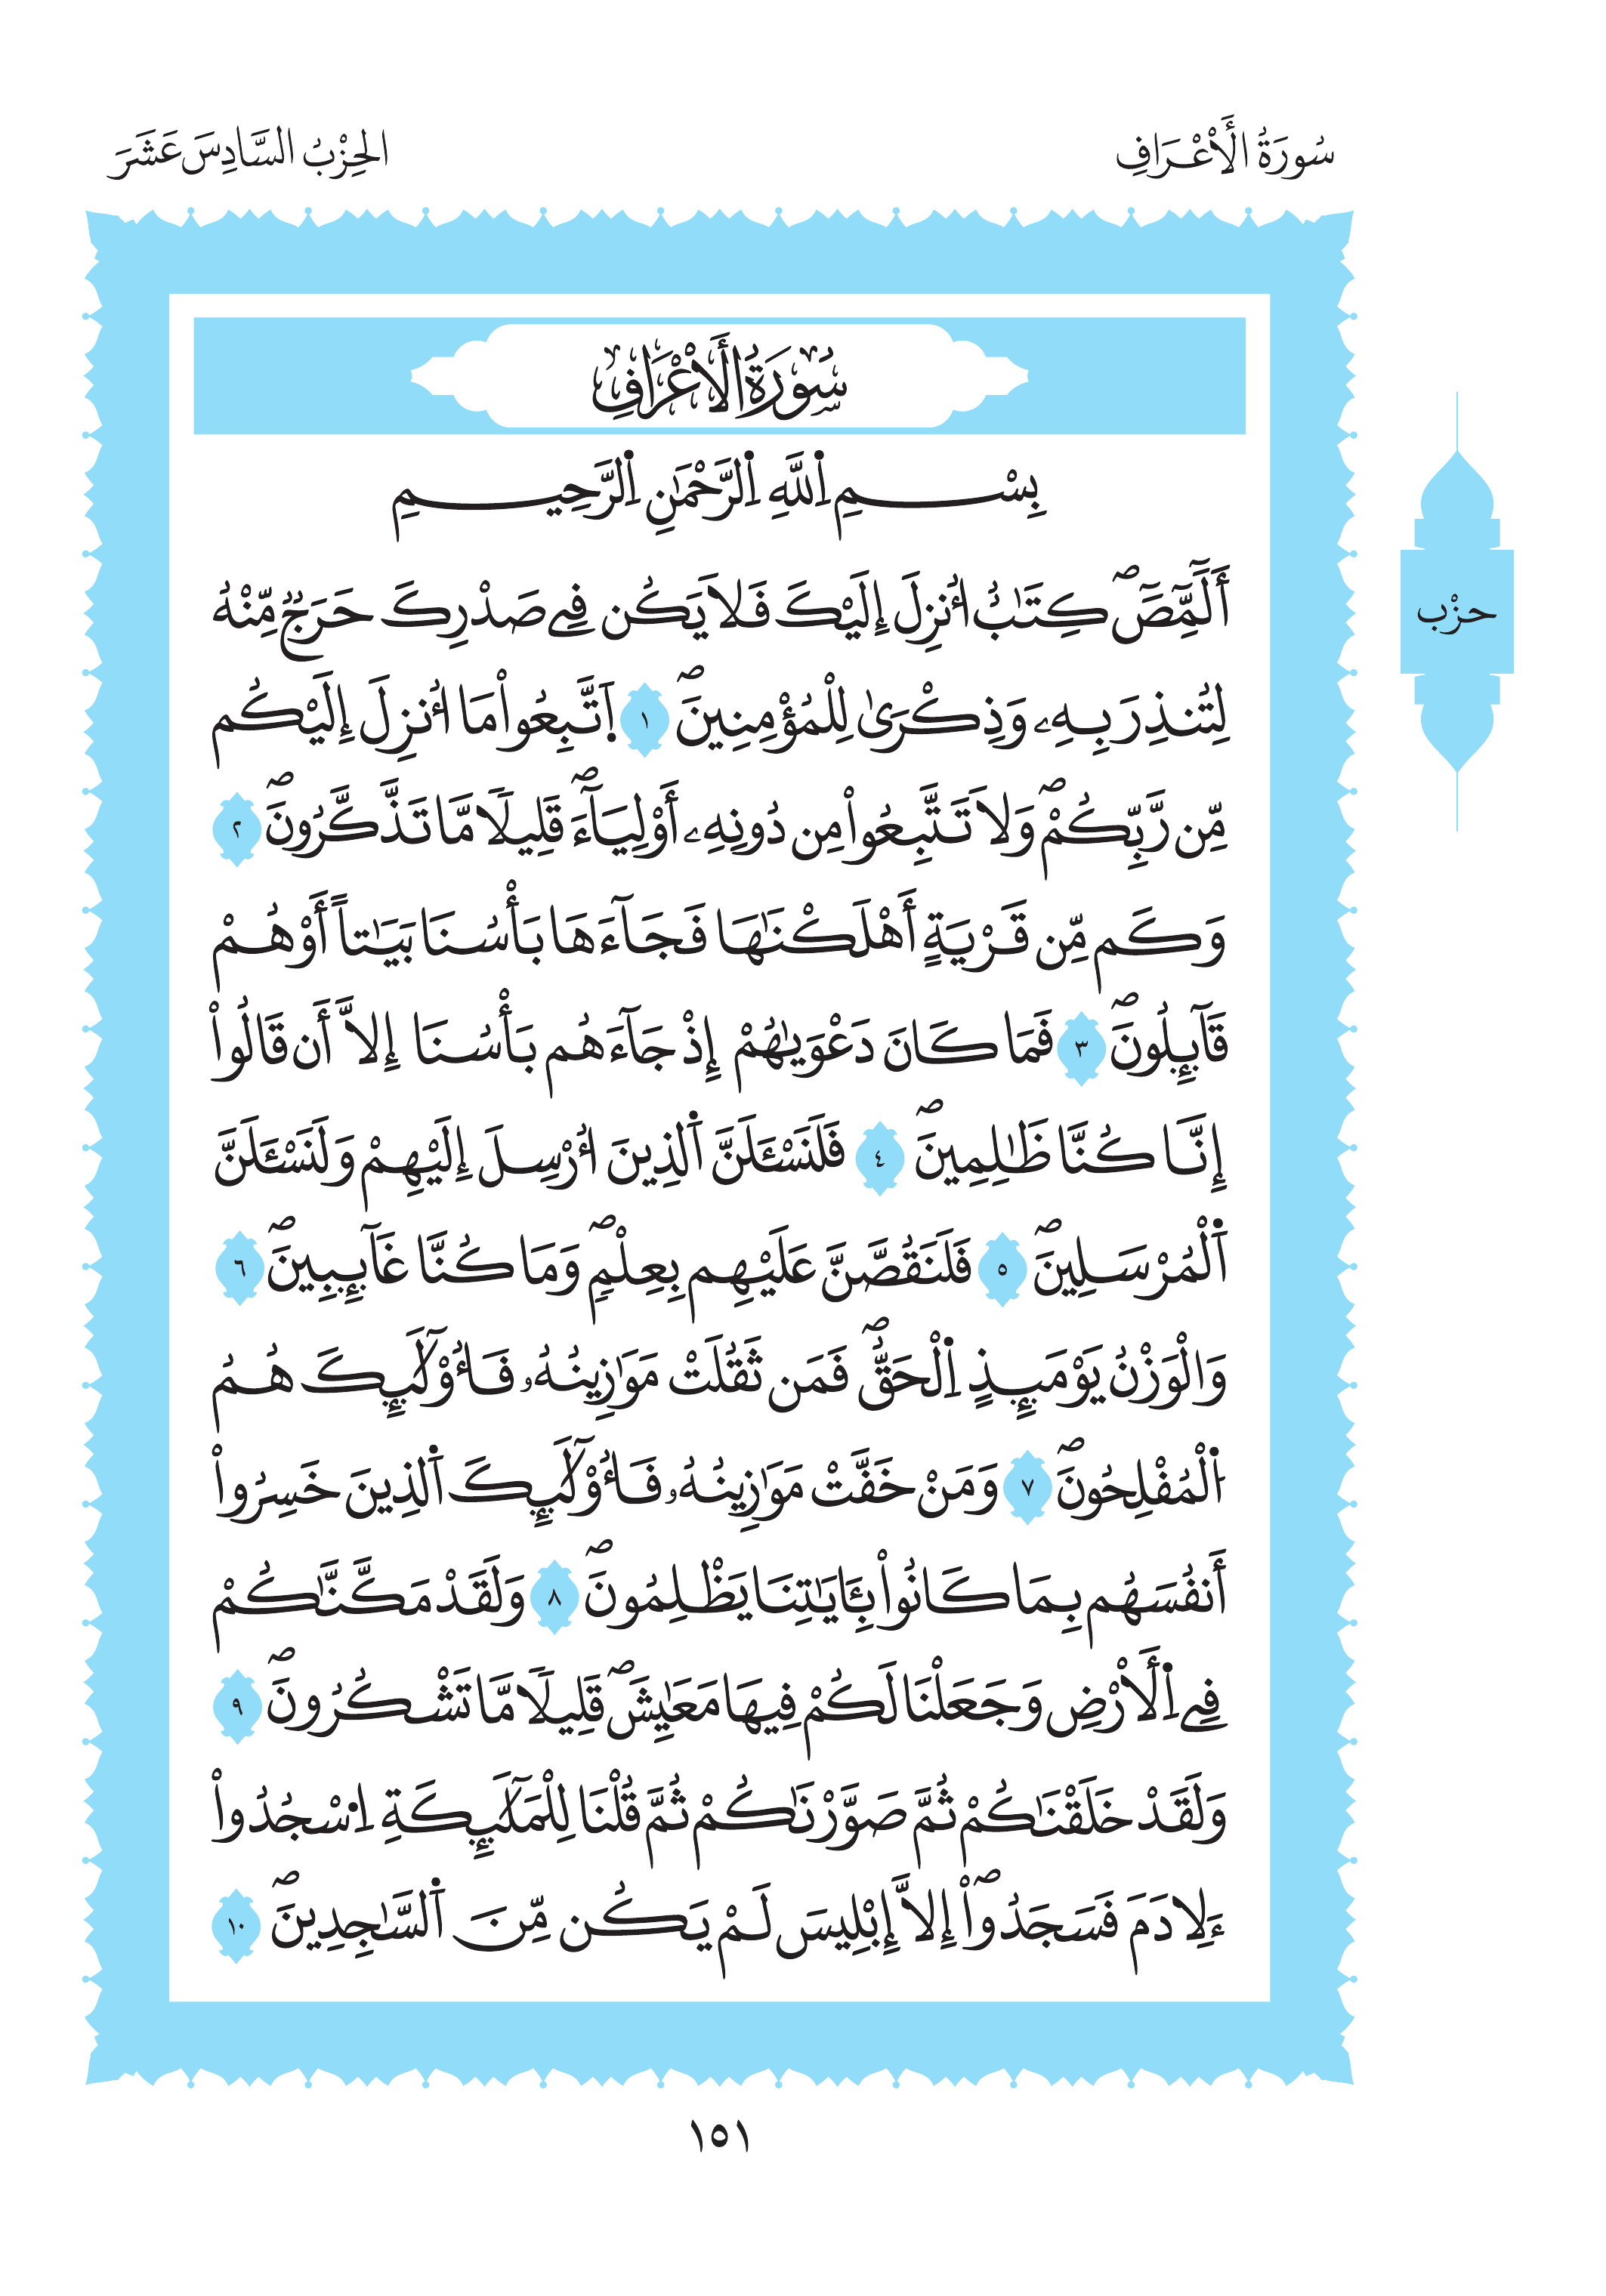 سُورَةُ الْأَعْرَافِ
الحِزْبُ السَّادِسَ عَشَرَ
سُورَةُ الْأَعْرَافِ
بِسْمِ اِ۬للَّهِ اِ۬لرَّحْمَٰنِ اِ۬لرَّحِيمِ
حزْب
أَلَٓمِّٓصَٓۖ كِتَٰبٌ ا۟نزِلَ إِلَيْكَ فَلَا يَكُن فِے صَدْرِكَ حَرَجٞ مِّنْهُ
لِتُنذِرَ بِهِۦ وَذِكْرَىٰ لِلْمُؤْمِنِينَۖ ١ اَ۪تَّبِعُواْ مَا أُنزِلَ إِلَيْكُم
مِّن رَّبِّكُمْۖ وَلَا تَتَّبِعُواْ مِن دُونِهِۦ أَوْلِيَآءَۖ قَلِيلاٗ مَّا تَذَّكَّرُونَۖ ٢
وَكَم مِّن قَرْيَةٍ أَهْلَكْنَٰهَا فَجَآءَهَا بَأْسُنَا بَيَٰتاً أَوْ هُمْ
قَآئِلُونَۖ ٣ فَمَا كَانَ دَعْوَيٰهُمْ إِذْ جَآءَهُم بَأْسُنَا إِلَّا أَن قَالُواْ
إِنَّا كُنَّا ظَٰلِمِينَۖ ٤ فَلَنَسْـَٔلَنَّ اَ۬لذِينَ أُرْسِلَ إِلَيْهِمْ وَلَنَسْـَٔلَنَّ
اَ۬لْمُرْسَلِينَۖ ٥ فَلَنَقُصَّنَّ عَلَيْهِم بِعِلْمٖۖ وَمَا كُنَّا غَآئِبِينَۖ ٦
وَالْوَزْنُ يَوْمَئِذٍ اِ۬لْحَقُّۖ فَمَن ثَقُلَتْ مَوَٰزِينُهُۥ فَأُوْلَٰٓئِكَ هُمُ
اُ۬لْمُفْلِحُونَۖ ٧ وَمَنْ خَفَّتْ مَوَٰزِينُهُۥ فَأُوْلَٰٓئِكَ اَ۬لذِينَ خَسِرُواْ
أَنفُسَهُم بِمَا كَانُواْ بِـَٔايَٰتِنَا يَظْلِمُونَۖ ٨ وَلَقَدْ مَكَّنَّٰكُمْ
فِے اِ۬لْأَرْضِ وَجَعَلْنَا لَكُمْ فِيهَا مَعَٰيِشَۖ قَلِيلاٗ مَّا تَشْكُرُونَۖ ٩
وَلَقَدْ خَلَقْنَٰكُمْ ثُمَّ صَوَّرْنَٰكُمْ ثُمَّ قُلْنَا لِلْمَلَٰٓئِكَةِ اِ۟سْجُدُواْ
ءَلِادَمَ فَسَجَدُوٓاْۖ إِلَّا إِبْلِيسَ لَمْ يَكُن مِّنَ اَ۬لسَّٰجِدِينَۖ ١٠
١٥١